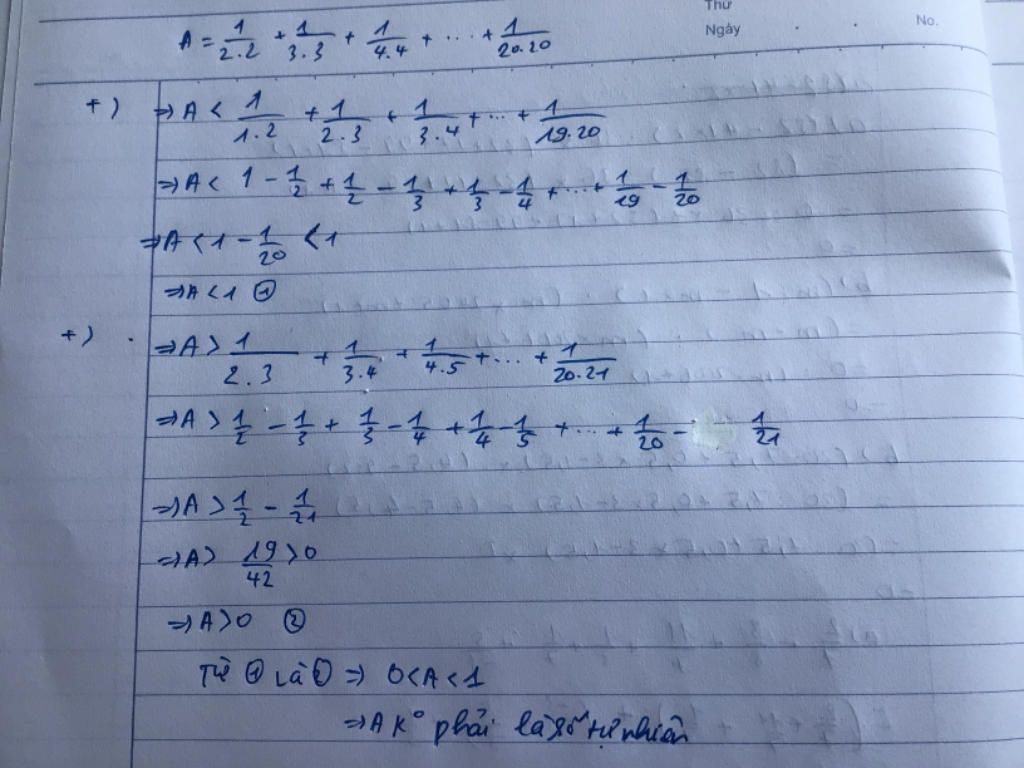 Thứ
Ngày . . No.
A = 1/2.2 + 1/3.3 + 1/4.4 + ... + 1/20.20
+) ⇒ A < 1/1.2 + 1/2.3 + 1/3.4 + ... + 1/19.20
⇒ A < 1 - 1/2 + 1/2 - 1/3 + 1/3 - 1/4 + ... + 1/19 - 1/20
⇒ A < 1 - 1/20 < 1
⇒ A < 1 ①
+) ⇒ A > 1/2.3 + 1/3.4 + 1/4.5 + ... + 1/20.21
⇒ A > 1/2 - 1/3 + 1/3 - 1/4 + 1/4 - 1/5 + ... + 1/20 - 1/21
⇒ A > 1/2 - 1/21
⇒ A > 19/42 > 0
⇒ A > 0 ②
Từ ① và ② ⇒ 0 < A < 1
⇒ A k° phải là số tự nhiên